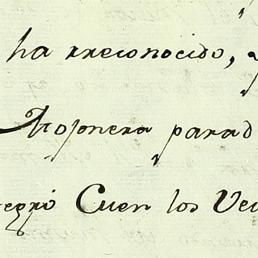 ha rreconocido, y
Troponera parad
tegró Cuen los Ve